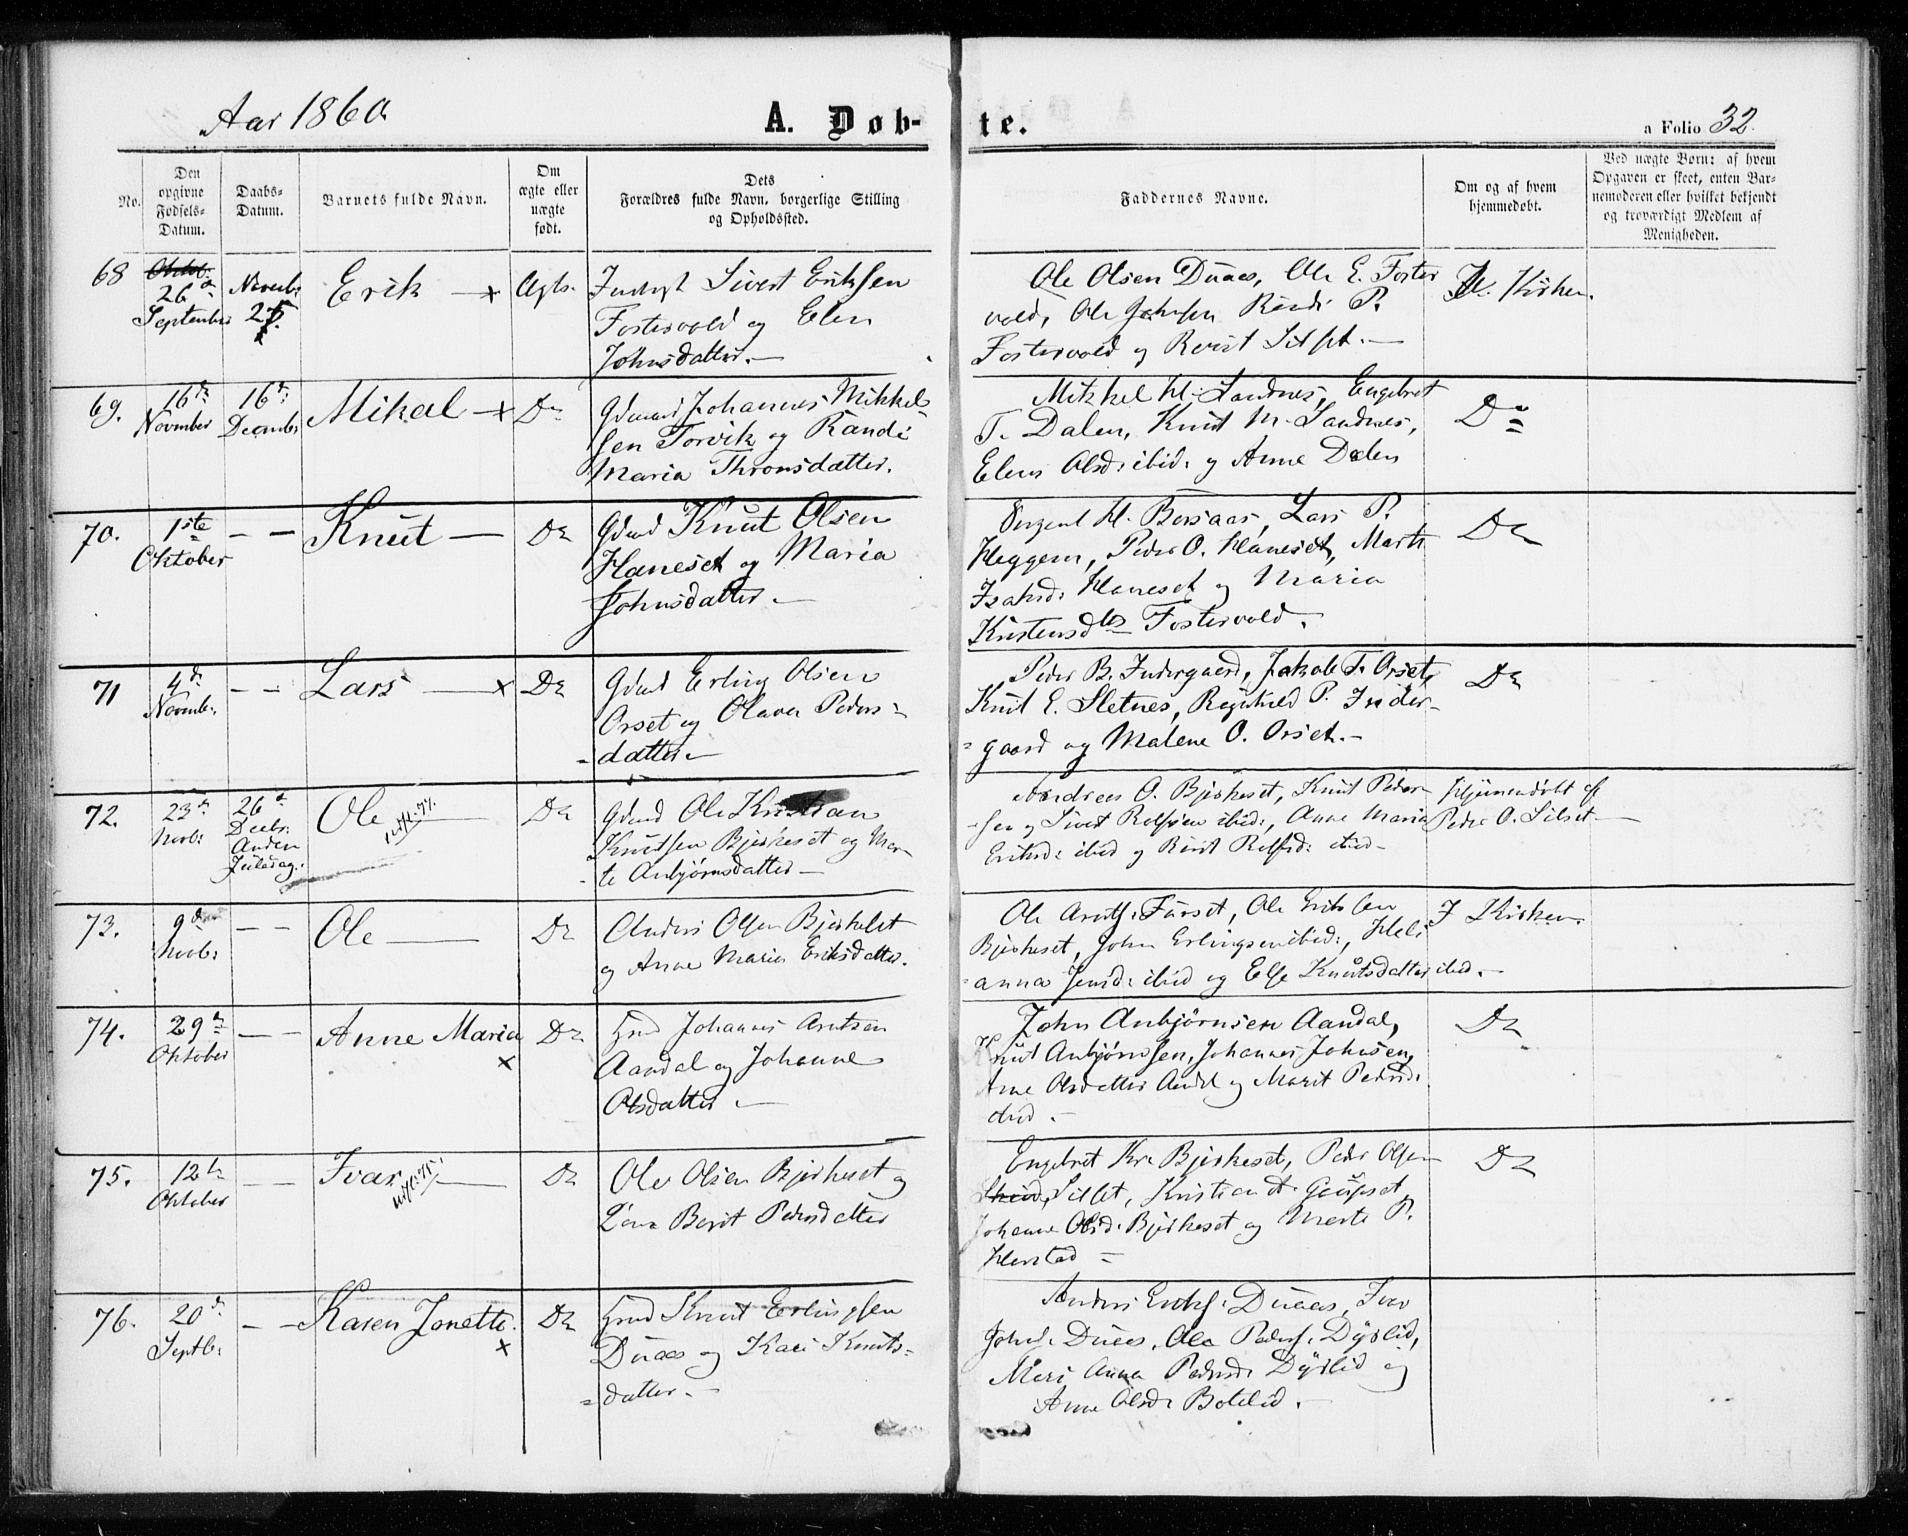 Aar 1860
A. Døbte.
a Folio 32.
No.
Den opgivne Fødsels-Datum.
Daabs-Datum.
Barnets fulde Navn.
Om ægte eller uægte født.
Dets Forældres fulde Navn, borgerlige Stilling og Opholdssted.
Faddernes Navne.
Om og af hvem hjemmedøbt.
Ved uægte Børn: af hvem Opgaven er skeet, enten Barnemoderen eller hvilket bekjendt og troværdigt Medlem af Menigheden.
68
26 September
Novemb: 25.
Erik
Ægte.
Sivert Eriksen
Fostervold og Elen
Johnsdatter.
Ole Olsen Duaas, Ole E. Foster
vold, Ole Johnsen Randi P.
Fostervold og Berit Silset.
I Kirken.
69.
16de November
16de Decemb:
Mikal
Do
Gdmand Johannes Mikkel-
sen Torvik og Randi
Maria Thronsdatter.
Mikkel M. Sandnes, Engebret
T. Dalen, Knut M. Sandnes,
Elen Olsd: ibid: og Anne Dalen
Do
70.
1ste Oktober
— —
Knut
Do
Gdmd Knut Olsen
Haneset og Maria
Johnsdatter.
H. Borsaas, Lars P.
Heggem, Peder O. Haneset, Marte
Isaksd: Haneset og Maria
Kristensdtr Fostervold.
Do
71
4de Novemb:
— —
Lars
Do
Gdmd Erling Olsen
Orset og Olava Peders-
datter
Peder B. Indergaard, Jakob T. Orset,
Knut E. Sletnes, Ragnhild P. Inder-
gaard og Malene O. Orset.
Do
72.
23de Novb:
26de Decbr: Anden Juledag.
Ole
Do
Gdmd Ole Kristian
Knutsen Bjerkeset og Mar-
te Anbjørnsdatter
Andreas O. Bjerkeset, Knut Peder-
sen og Sivert Rolfsen ibid:, Anne Maria
Eriksd: ibid og Berit Rolfsd: ibid
Hjemmedøbt af
Peder O. Silset
73.
9de Novb:
— —
Ole
Do
Anders Olsen Bjerkeset
og Anne Maria Eriksdatter.
Ole Arntsen Furset, Ole Eriksen
Bjerkeset, John Erlingsen ibid:, Heli-
anna Jensd: ibid og Else Knutsdatter ibid.
I Kirken.
74.
29de Oktober
— —
Anne Maria
Do
Johannes Arntsen
Aandal og Johanne
Olsdatter
John Anbjørnsen Aandal,
Knut Anbjørnsen, Johannes Johnsen,
Ane Olsdatter Aandal og Marit Pedersd:
ibid.
Do
75.
12te Oktober
— —
Ivar
Do
Ole Olsen Bjerkeset og
Berit Pedersdatter
Engebret Kr. Bjerkeset, Peder Olsen
Silset, Kristian A. Gaupset
Johanne Olsd: Bjerkeset og Marte P.
Harstad
Do
76.
20de Septbr:
— —
Karen Jonette.
Do
Knut Erlingsen
Duaas og Kari Knuts-
datter.
Anders Eriks: Duaas, Iver
Johns: Duaas, Ole Peders: Dyrlid,
Mari Anna Pedersd: Dyrlid og
Anne Olsd: Botslid.